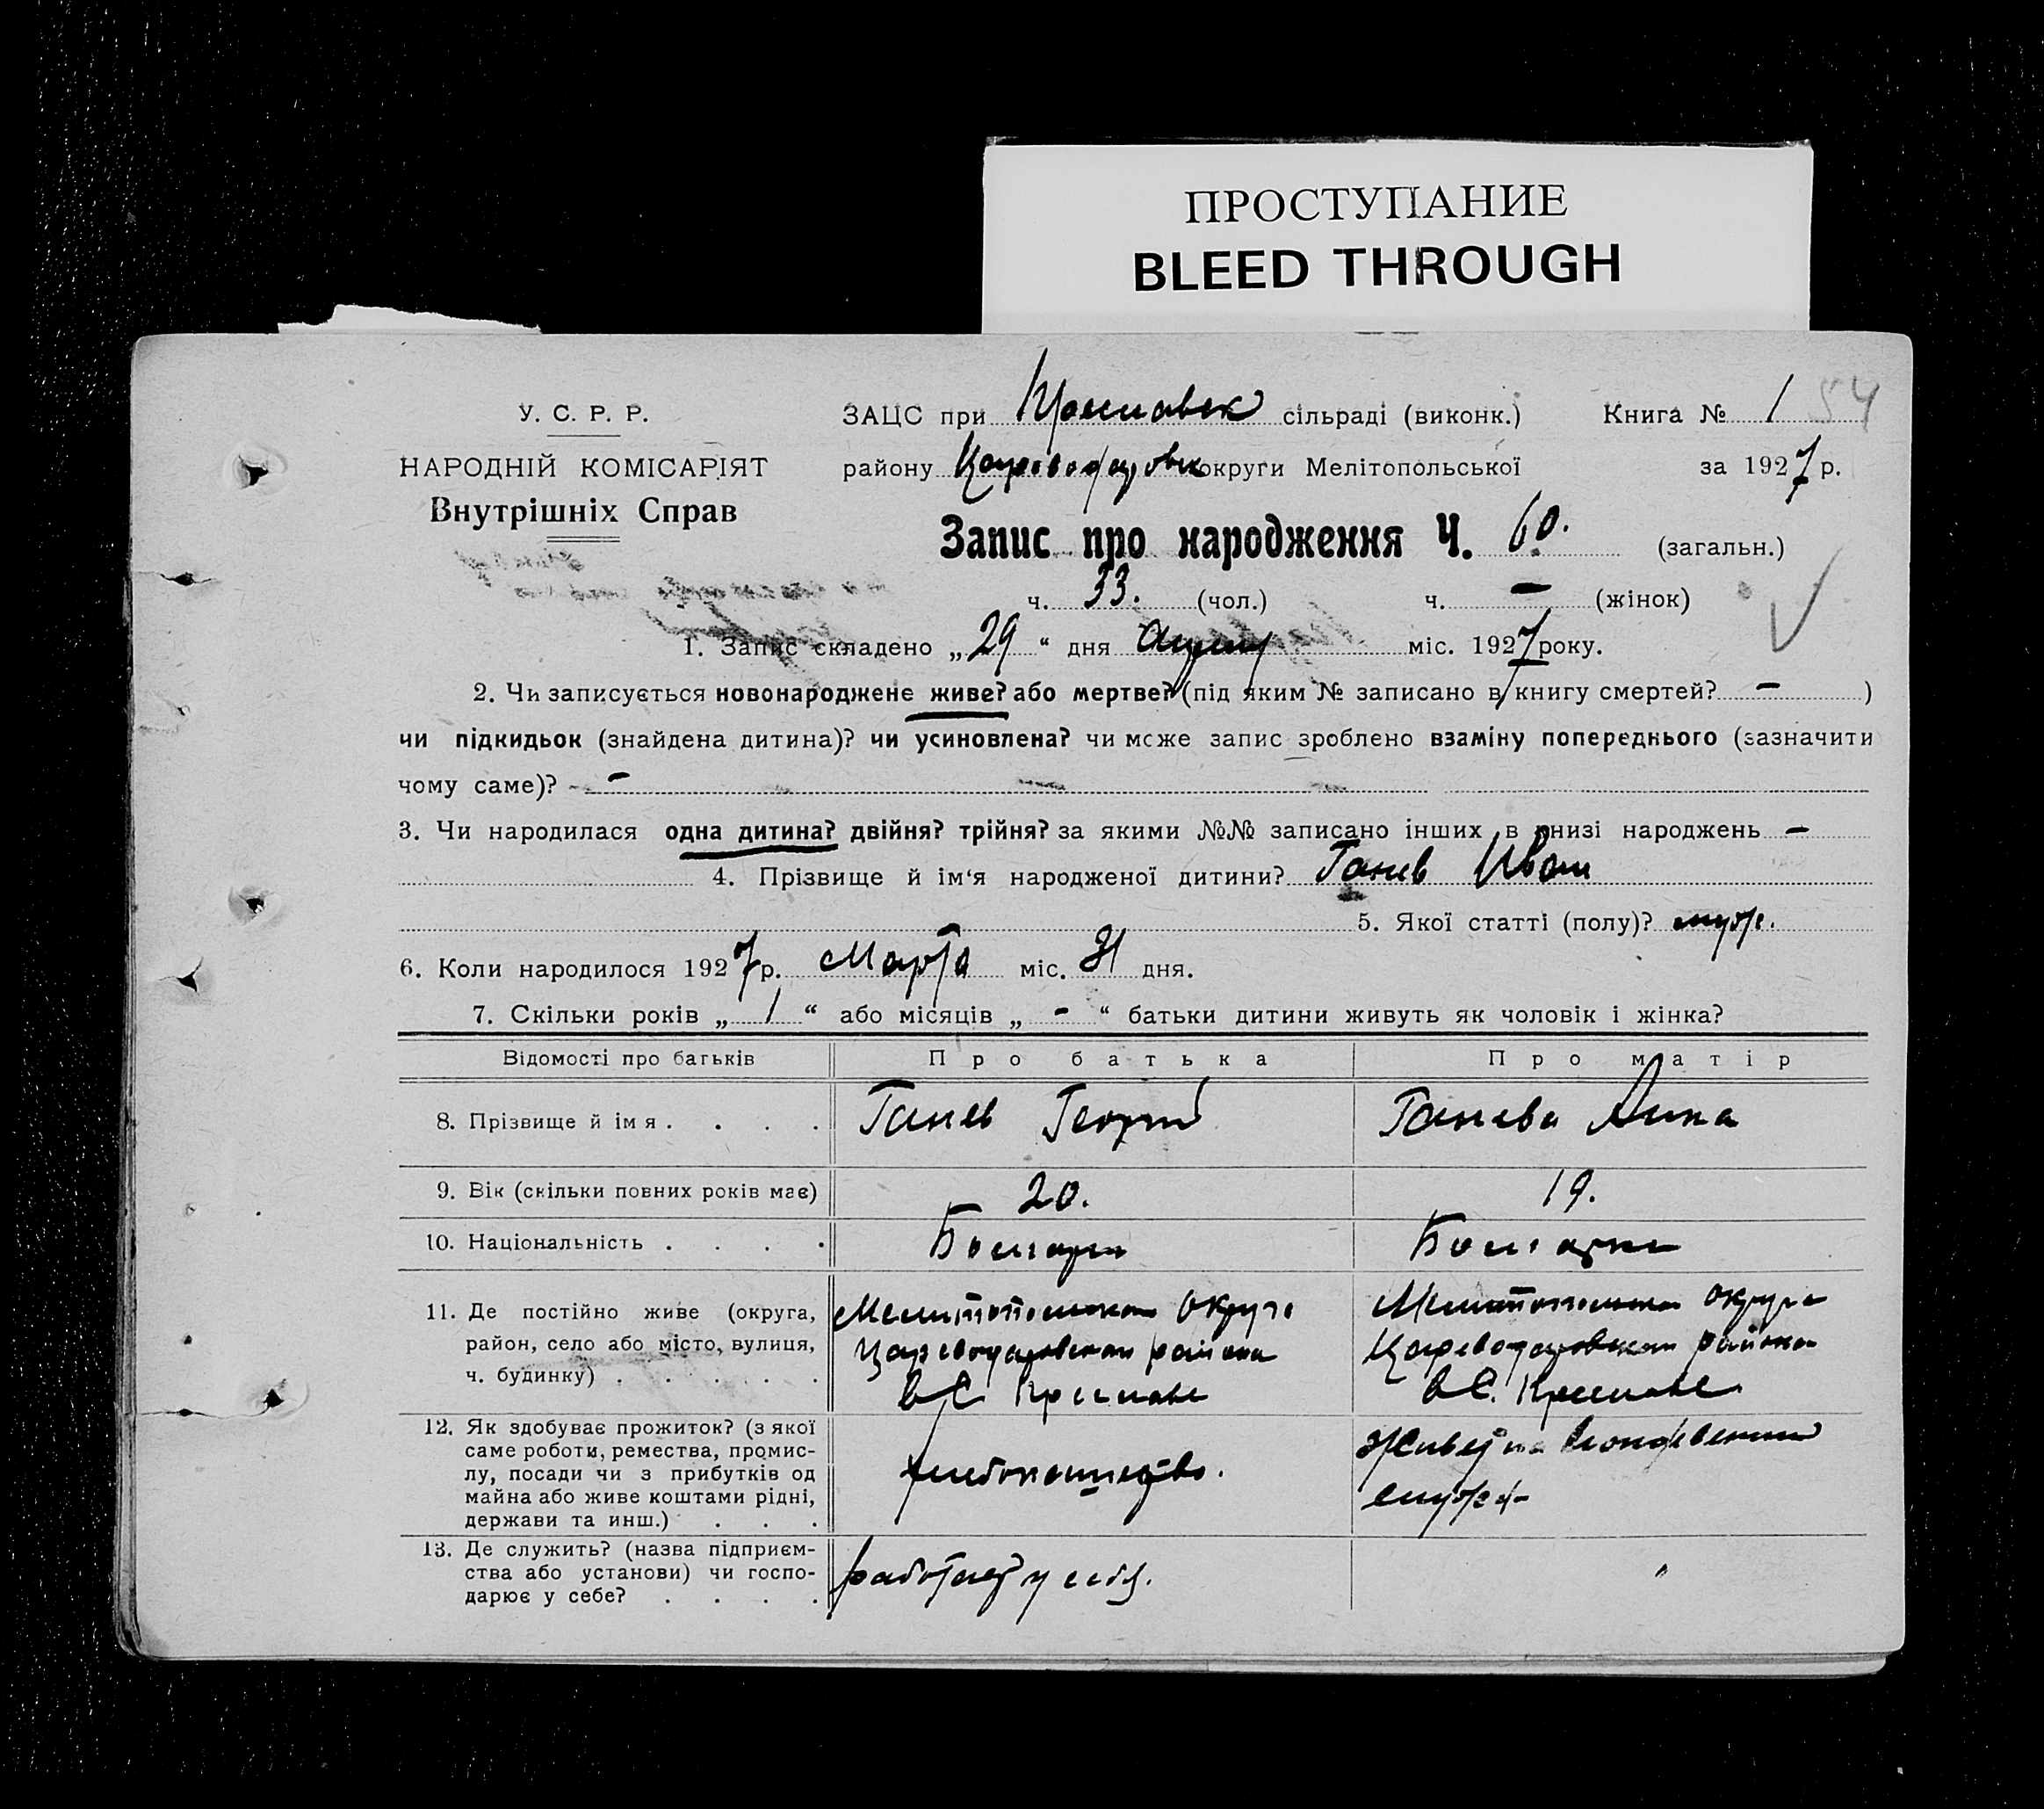 ПРОСТУПАНИЕ
BLEED THROUGH
У. С. Р. Р.
НАРОДНІЙ КОМІСАРІЯТ
Внутрішніх Справ
ЗАЦС при сільраді (виконк.) Книга № 1 54
району округи Мелітопольської за 1927 р.
Запис про народження Ч. 60. (загальн.)
ч. 33. (чол.) ч. — (жінок)
1. Запис складено „29“ дня міс. 1927 року.
2. Чи записується новонароджене живе? або мертве? (під яким № записано в книгу смертей? — )
чи підкидьок (знайдена дитина)? чи усиновлена? чи може запис зроблено взаміну попереднього (зазначити
чому саме)? —
3. Чи народилася одна дитина? двійня? трійня? за якими №№ записано інших в книзі народжень —
4. Прізвище й ім‘я народженої дитини? Ганев Иван
5. Якої статті (полу)? муж.
6. Коли народилося 1927 р. Марта міс. 31 дня.
7. Скільки років „ 1 “ або місяців „ - “ батьки дитини живуть як чоловік і жінка?
Відомості про батьків Про батька Про матір
8. Прізвище й ім я . . . . Ганев Георгий Ганева Анна
9. Вік (скільки повних років має) 20. 19.
10. Національність . . . . Болгарин Болгарка
11. Де постійно живе (округа, район, село або місто, вулиця, ч. будинку) . . . . . .
округа
района
в С.
округа
района
в С.
12. Як здобуває прожиток? (з якої
саме роботи, ремества, промис-
лу, посади чи з прибутків од
майна або живе коштами рідні,
держави та инш.) . . .
хлебопашество.
Живет на иждевении
мужа
13. Де служить? (назва підприєм-
ства або установи) чи госпо-
дарює у себе? . . . .
работает у себя.